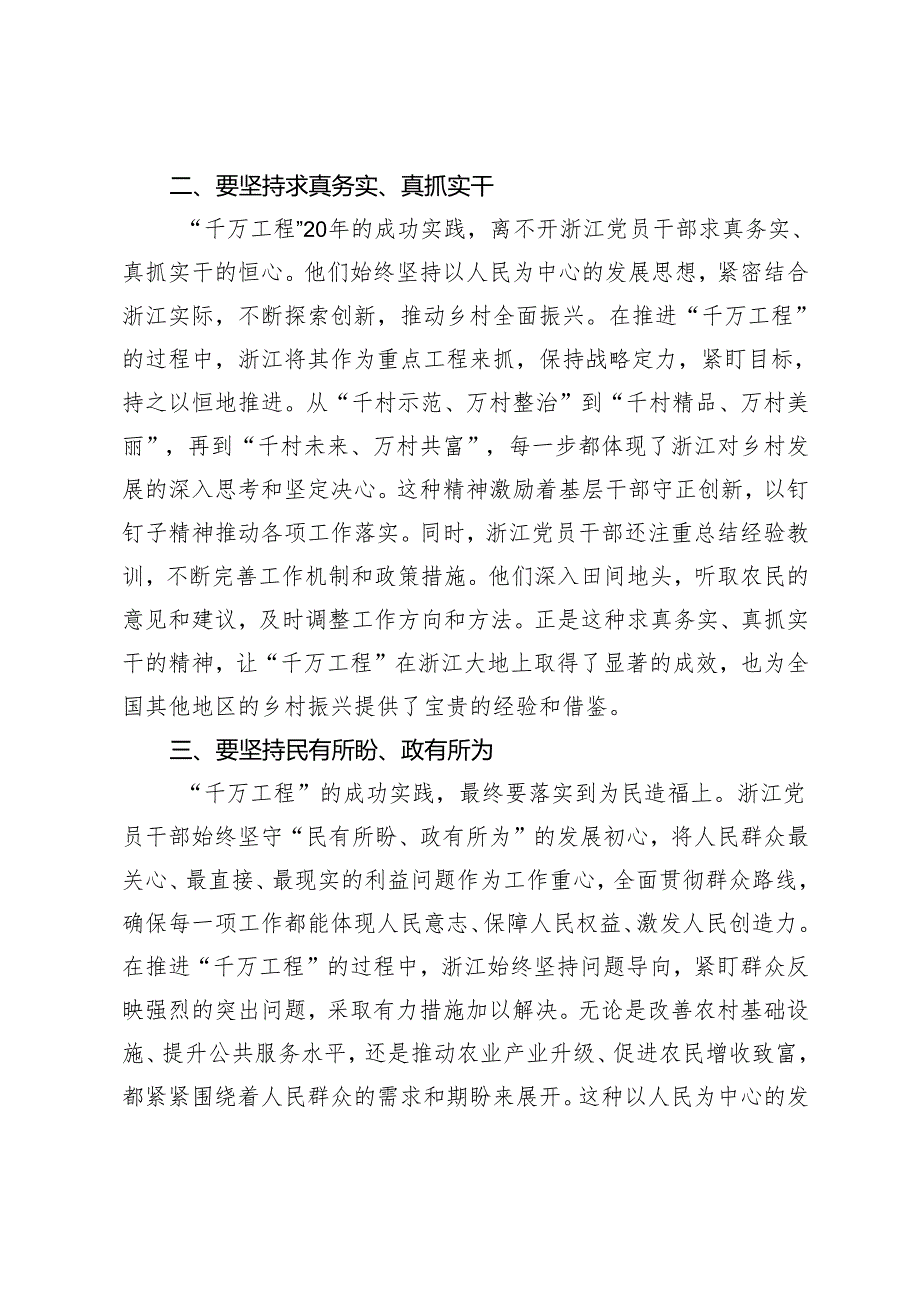 二、要坚持求真务实、真抓实干
“千万工程”20年的成功实践，离不开浙江党员干部求真务实、
真抓实干的恒心。他们始终坚持以人民为中心的发展思想，紧密结合
浙江实际，不断探索创新，推动乡村全面振兴。在推进“千万工程”
的过程中，浙江将其作为重点工程来抓，保持战略定力，紧盯目标，
持之以恒地推进。从“千村示范、万村整治”到“千村精品、万村美
丽”，再到“千村未来、万村共富”，每一步都体现了浙江对乡村发
展的深入思考和坚定决心。这种精神激励着基层干部守正创新，以钉
钉子精神推动各项工作落实。同时，浙江党员干部还注重总结经验教
训，不断完善工作机制和政策措施。他们深入田间地头，听取农民的
意见和建议，及时调整工作方向和方法。正是这种求真务实、真抓实
干的精神，让“千万工程”在浙江大地上取得了显著的成效，也为全
国其他地区的乡村振兴提供了宝贵的经验和借鉴。
三、要坚持民有所盼、政有所为
“千万工程”的成功实践，最终要落实到为民造福上。浙江党
员干部始终坚守“民有所盼、政有所为”的发展初心，将人民群众最
关心、最直接、最现实的利益问题作为工作重心，全面贯彻群众路线，
确保每一项工作都能体现人民意志、保障人民权益、激发人民创造力。
在推进“千万工程”的过程中，浙江始终坚持问题导向，紧盯群众反
映强烈的突出问题，采取有力措施加以解决。无论是改善农村基础设
施、提升公共服务水平，还是推动农业产业升级、促进农民增收致富，
都紧紧围绕着人民群众的需求和期盼来展开。这种以人民为中心的发